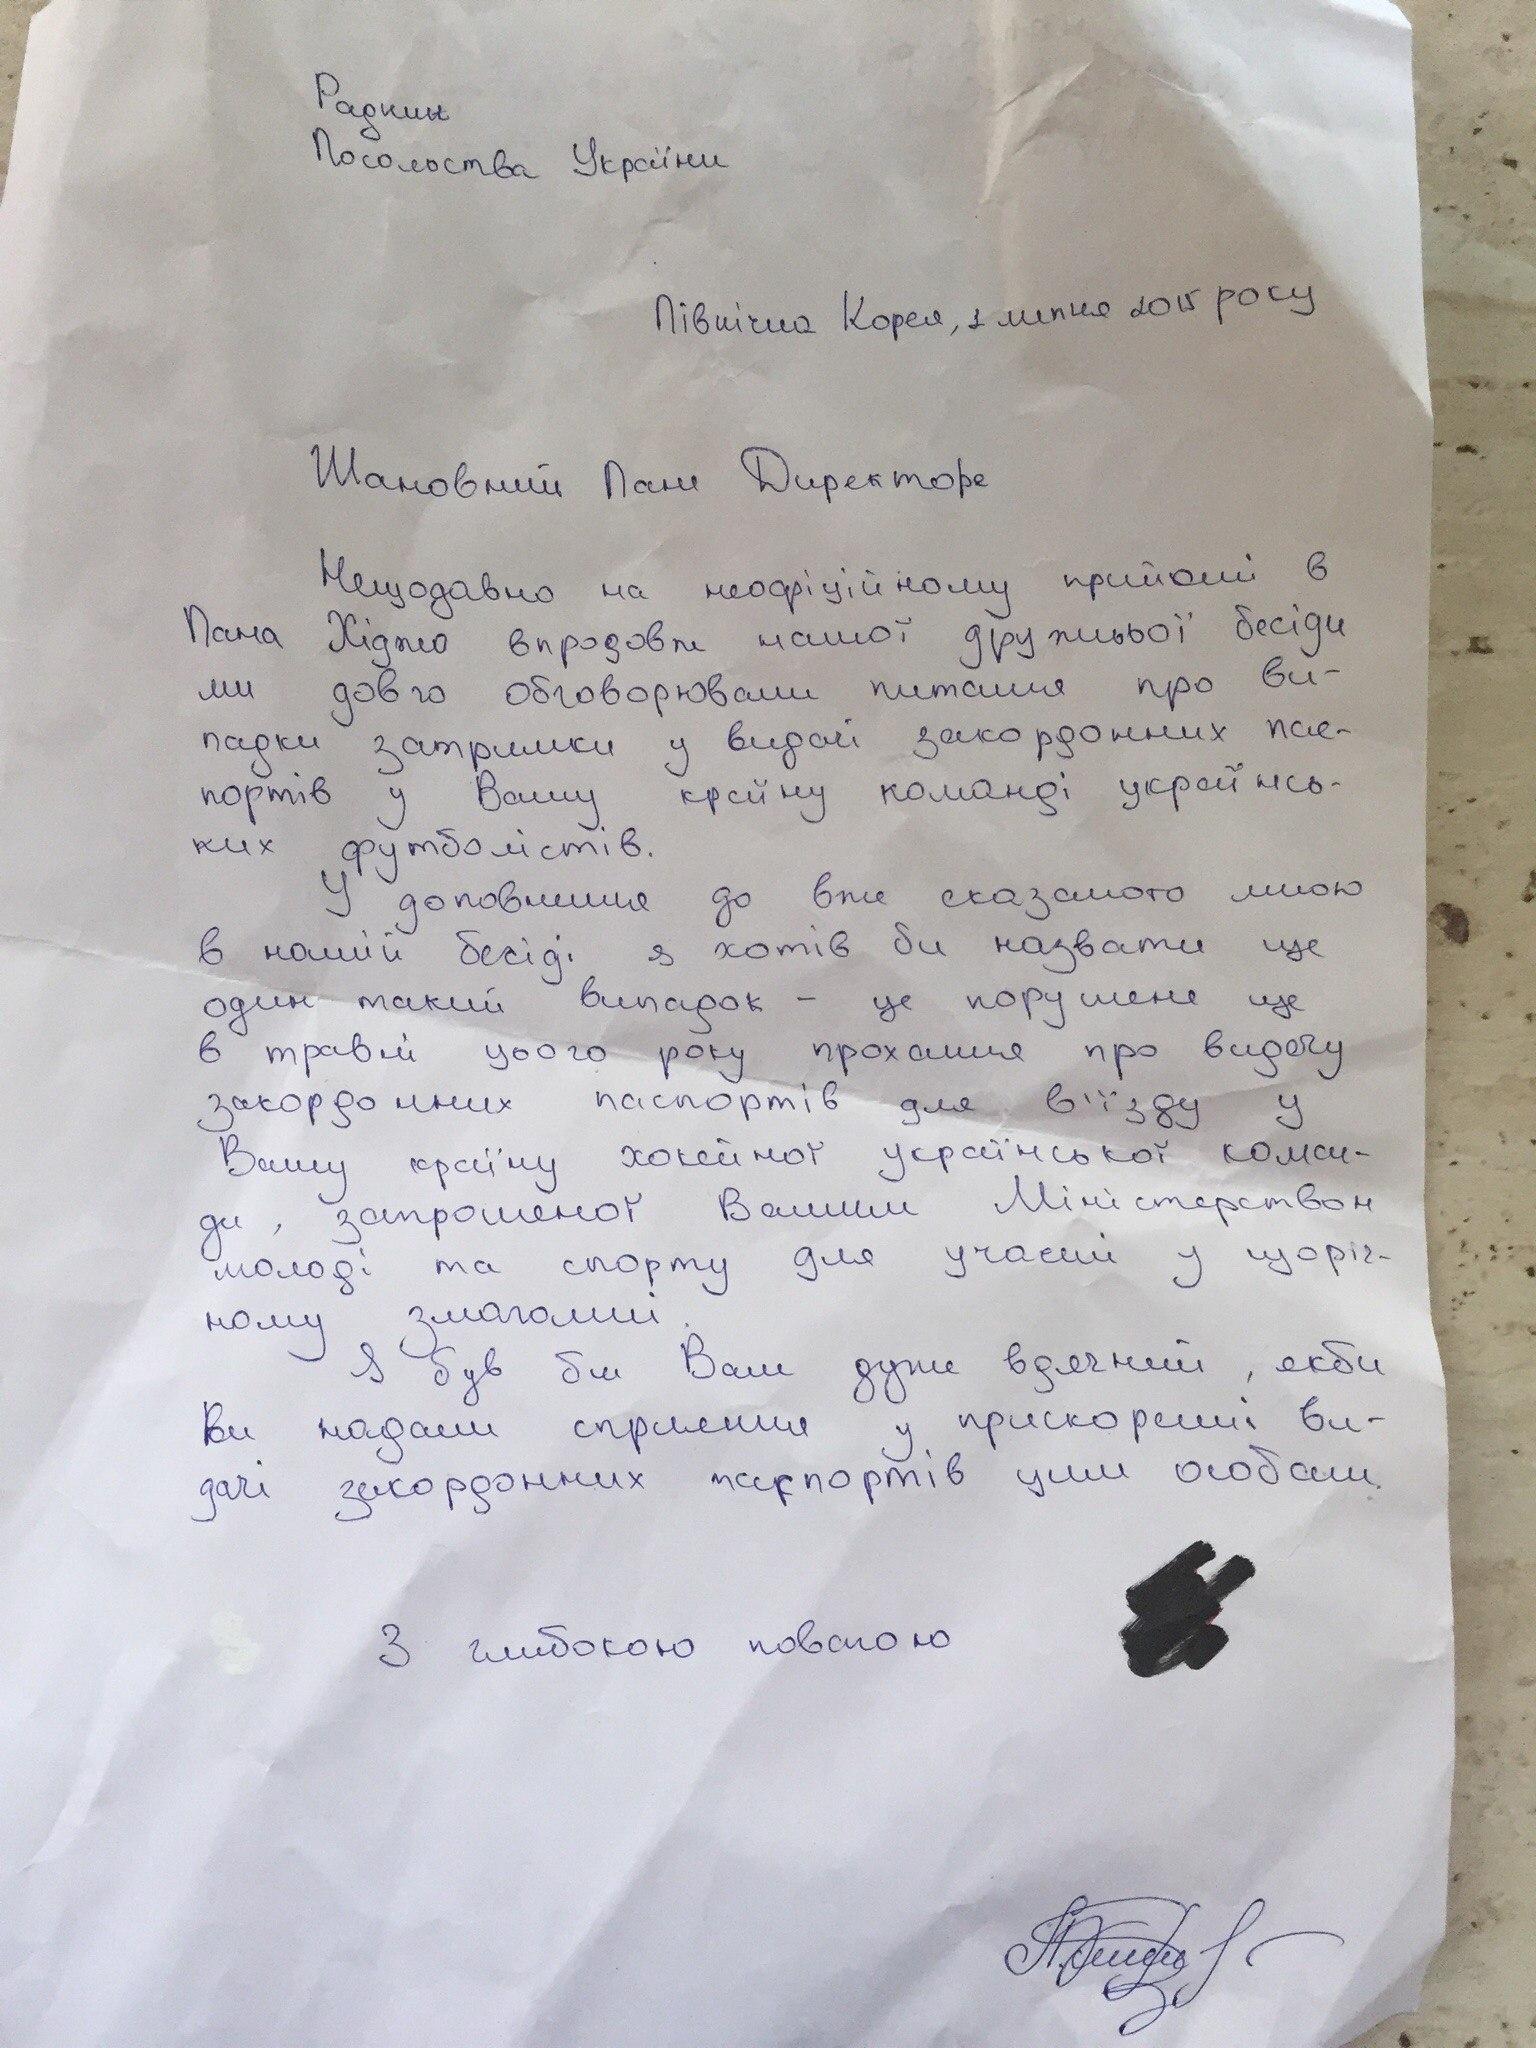 Радник
Посольства України
Північна Корея, 1 липня 2015 року
Шановний Пане Директоре
Нещодавно на неофіційному прийомі в
Пана Хіджо впродовж нашої дружньої бесіди
ми довго обговорювали питання про ви-
падки затримки у видачі закордонних пас-
портів у Вашу країну команді українсь-
ких футболістів.
У доповнення до вже сказаного мною
в нашій бесіді я хотів би назвати ще
один такий випадок – це порушене ще
в травні цього року прохання про видачу
закордонних паспортів для в'їзду у
Вашу країну хокейної української коман-
ди, запрошеної Вашим Міністерством
молоді та спорту для участі у щоріч-
ному змаганні.
Я був би Вам дуже вдячний, якби
Ви надали сприяння у прискоренні ви-
дачі закордонних паспортів цим особам.
З глибокою повагою